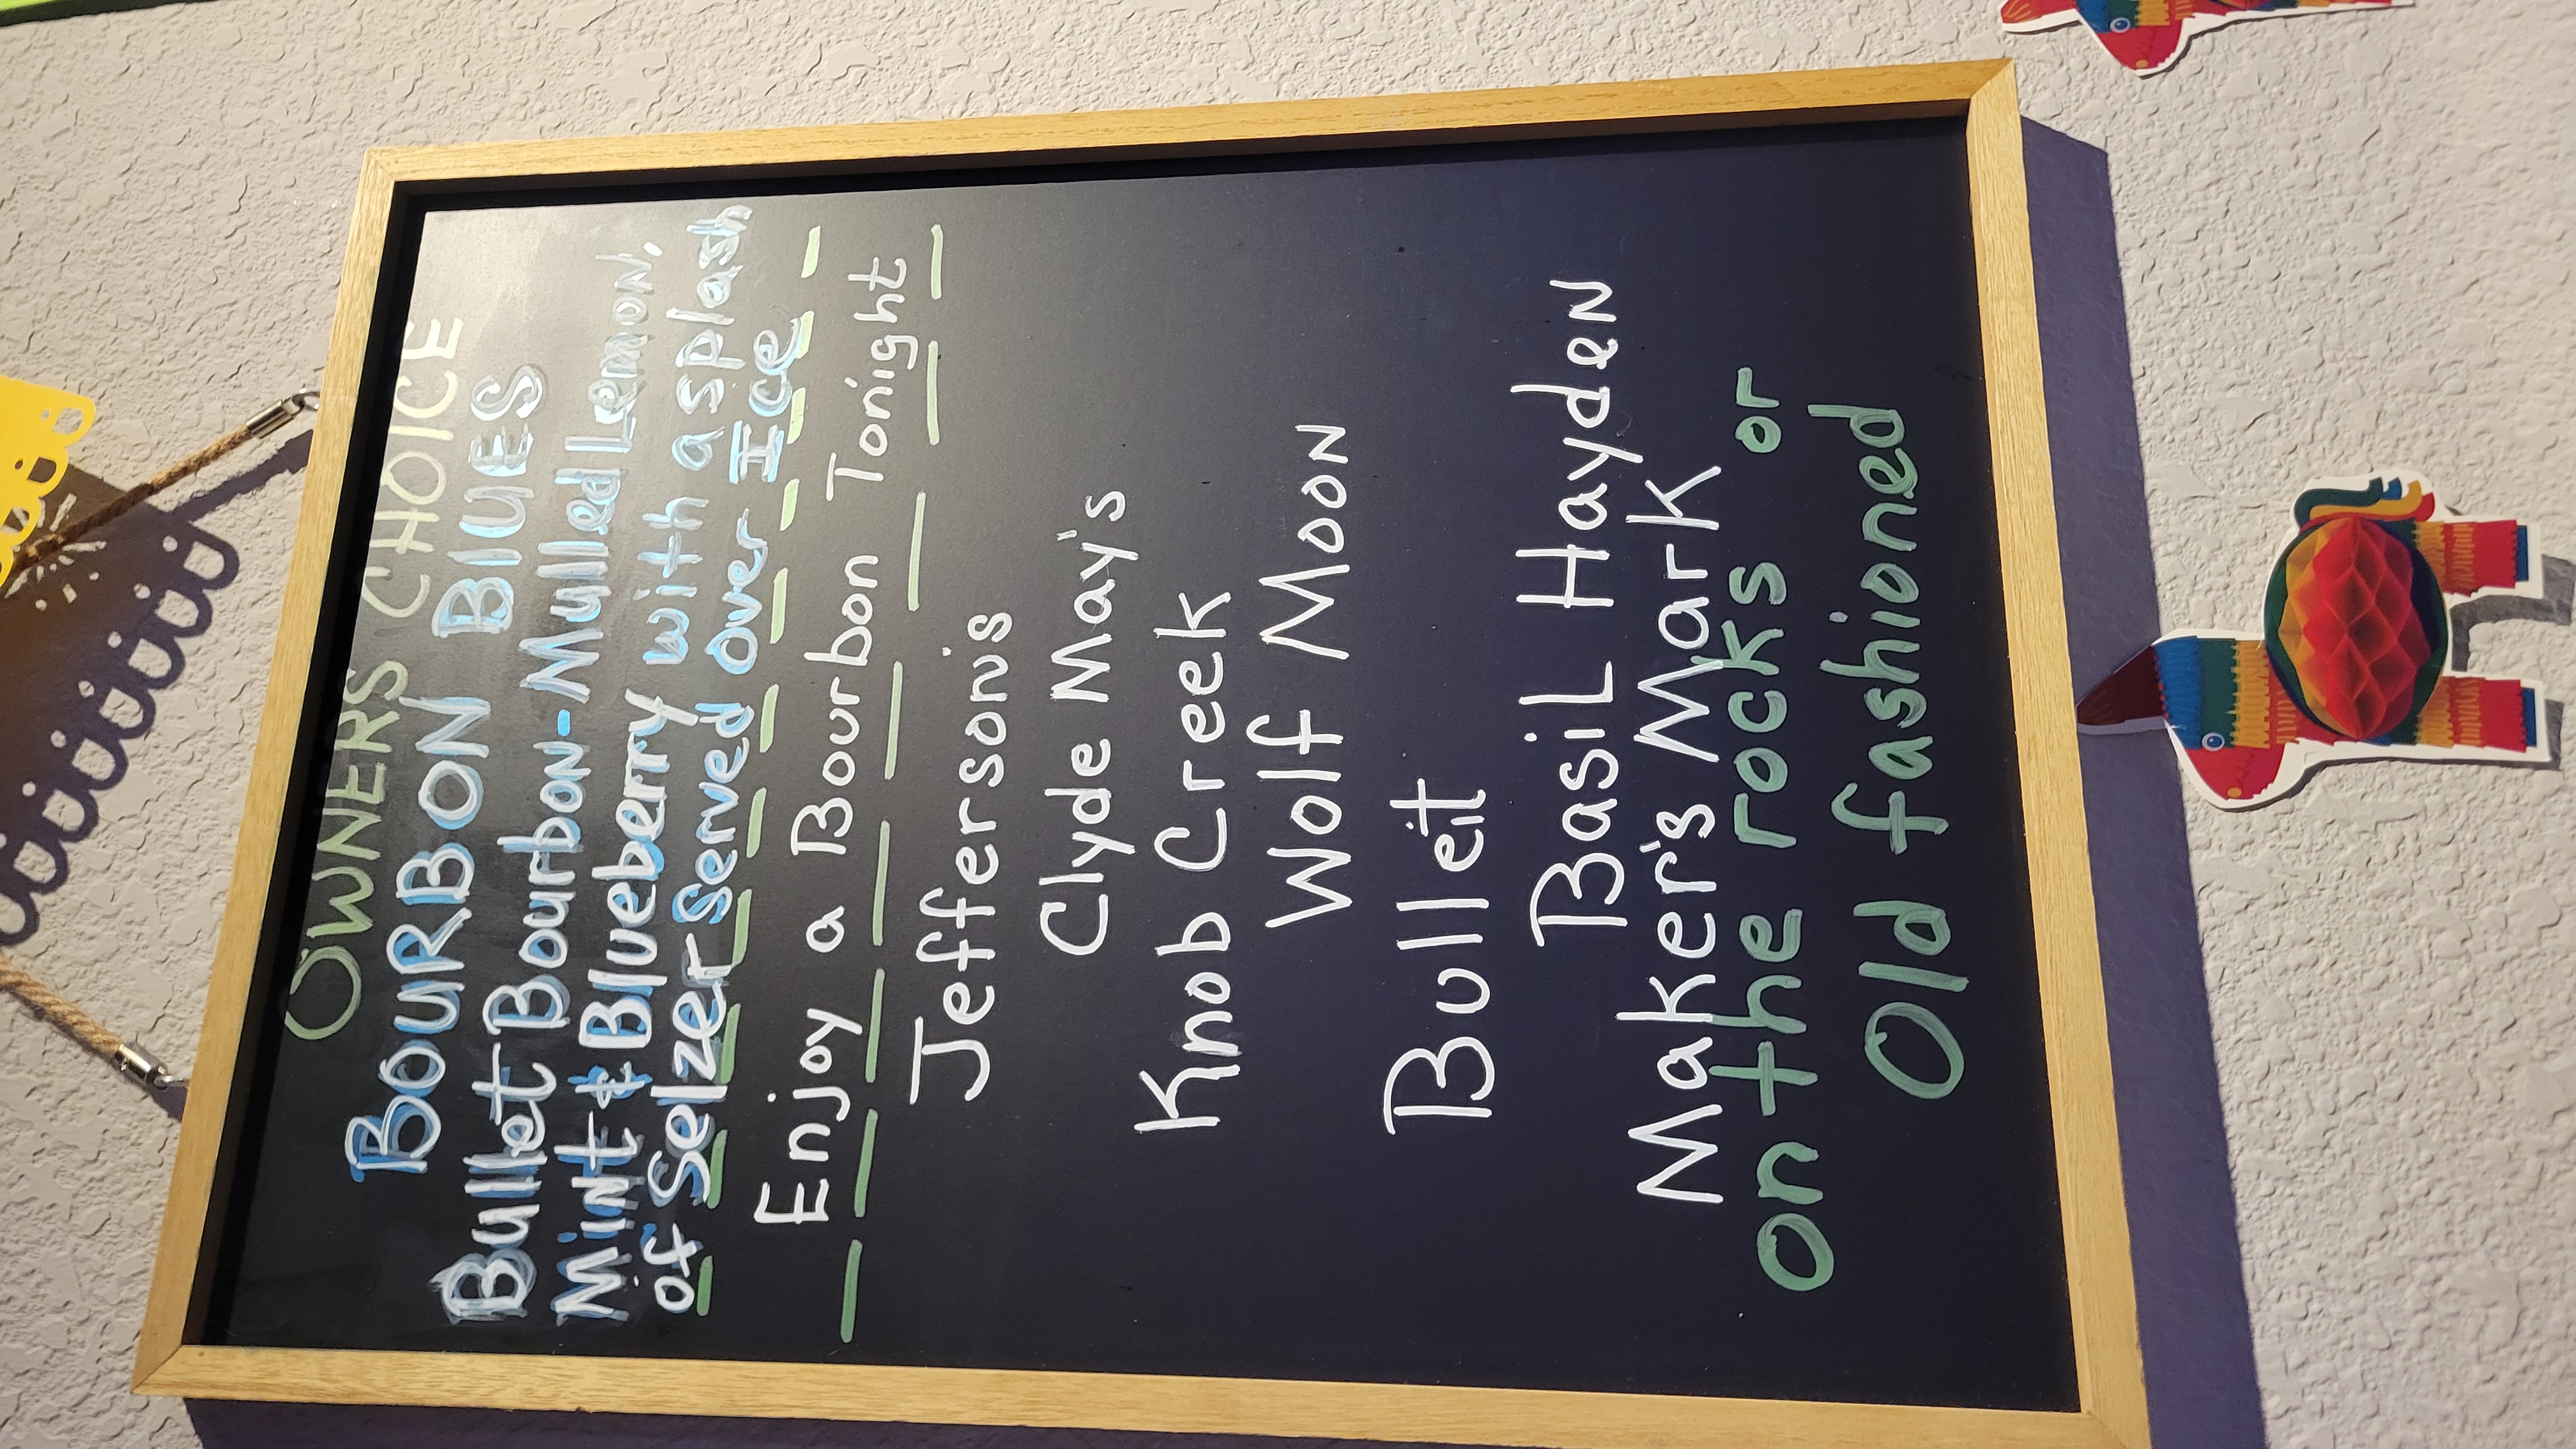 OWNERS CHOICE
BOURBON BLUES
Bullet Bourbon-Mulled Lemon,
Mint & Blueberry with a splash
of Selzer Served Over Ice
Enjoy a Bourbon Tonight
Jefferson's
Clyde May's
Knob Creek
Wolf Moon
Bulleit
Basil Hayden
Maker's Mark
on the rocks or
Old fashioned